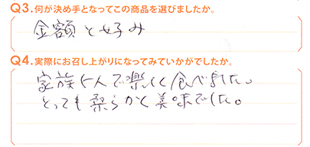 Q3.何が決め手となってこの商品を選びましたか。
金額と好み
Q4.実際にお召し上がりになってみていかがでしたか。
家族5人で楽しく食べました。
とっても柔らかく美味でした。